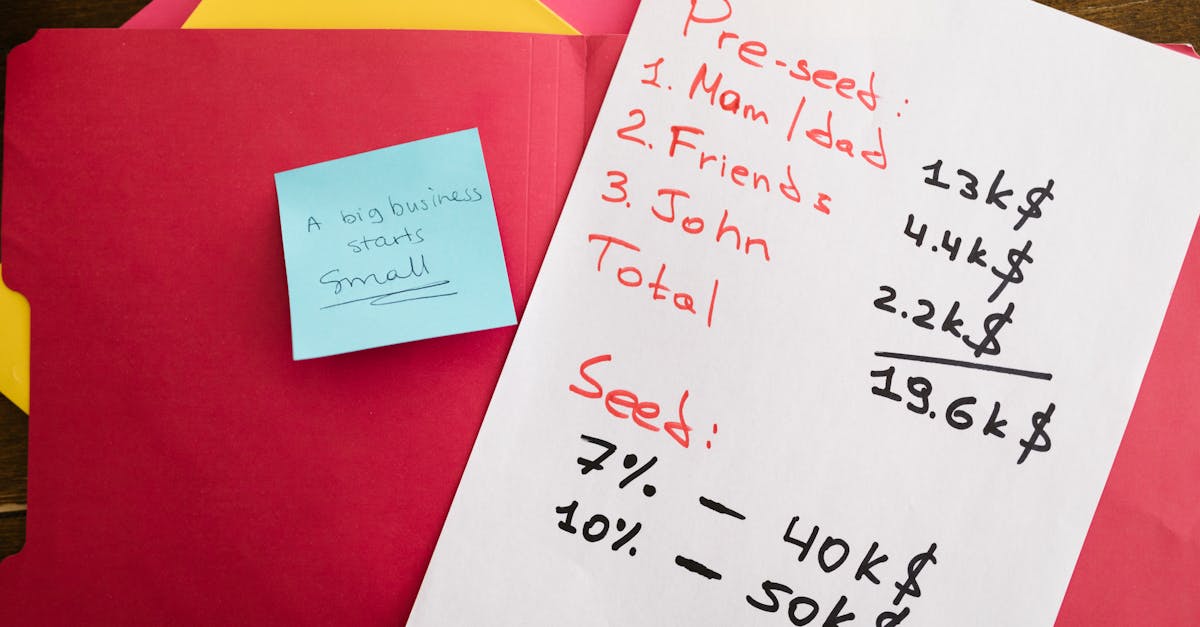 A big business
starts
small
Pre-seed:
1. Mam/dad 13k$
2. Friends 4.4k$
3. John 2.2k$
Total 19.6k$
Seed:
7% — 40k$
10% — 50k$